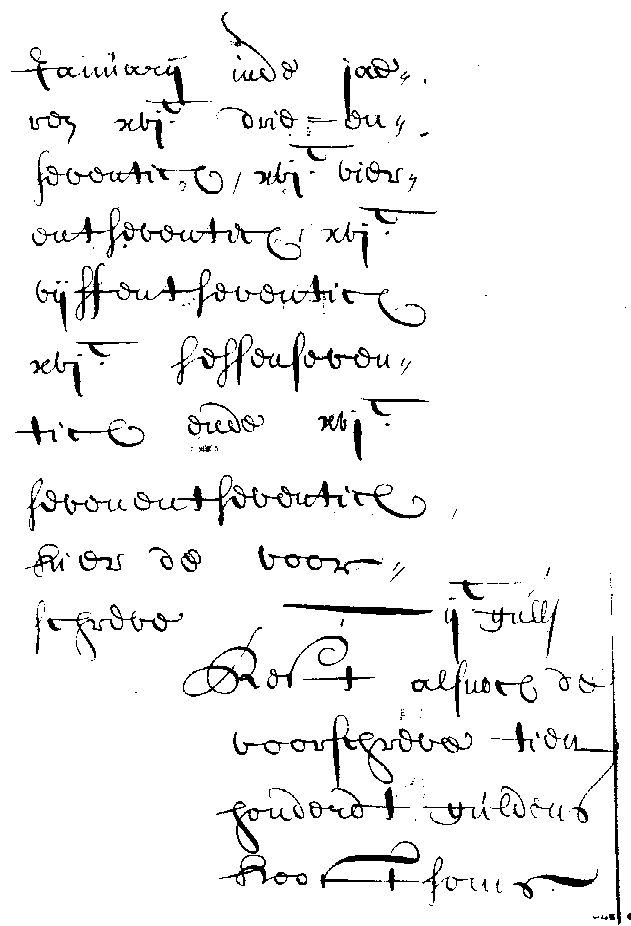 January inde jae„
ren xvjᶜ drie-en„
seventich, xvjᶜ vier„
entseventich, xvjᶜ
vijffentseventich
xvjᶜ sessenseven„
tich ende xvjᶜ
sevenentseventich
hier de voor„
schreve ijᶜ gull
Rest alsnoch de
voorschreve tien
hondert guldens
hooftsoms